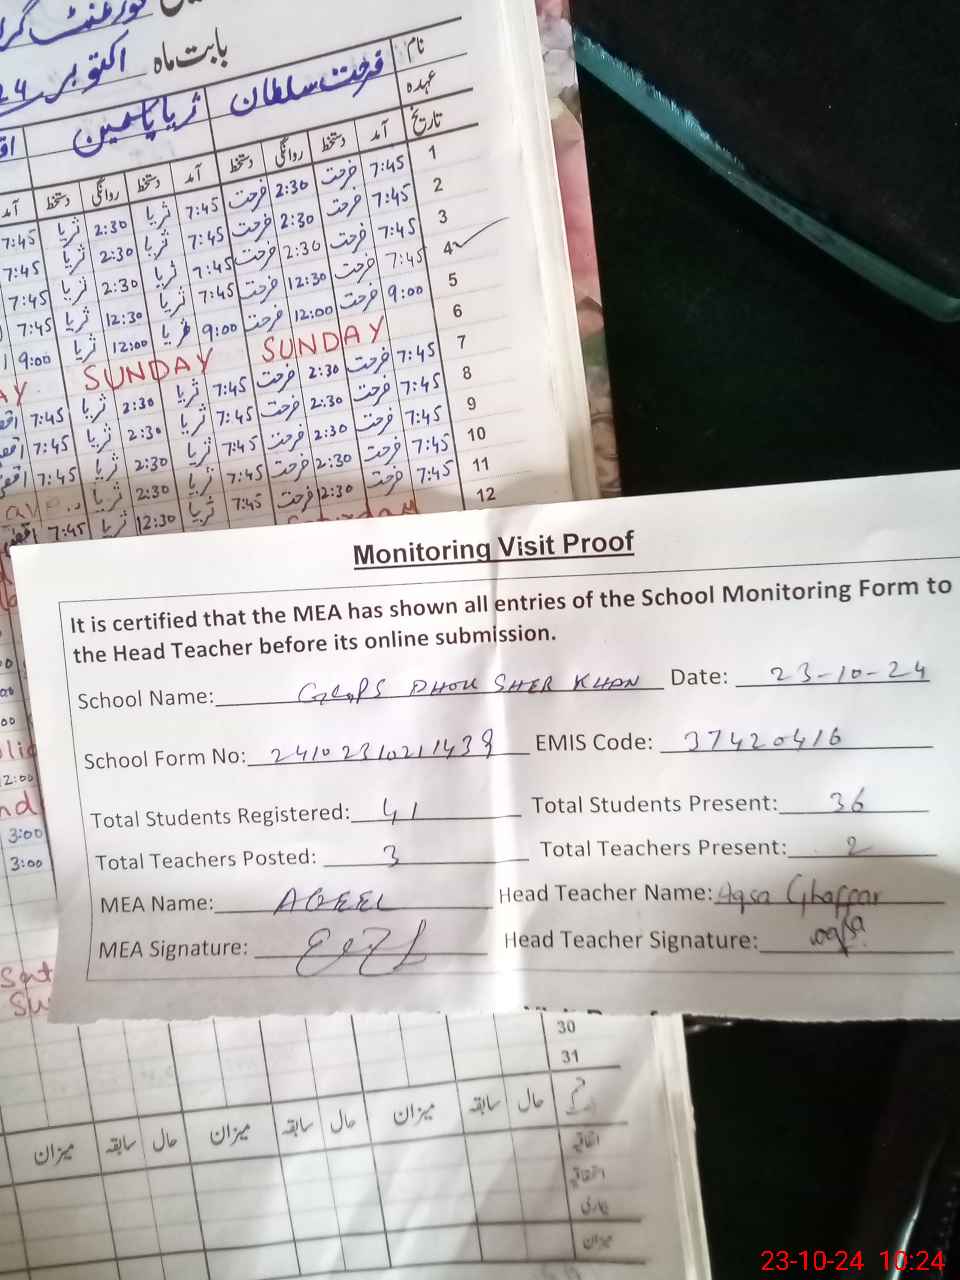 بابت ماہ اکتوبر 24
نام فرحت سلطان ثریا یاسمین
عہدہ
تاریخ آمد دستخط روانگی دستخط آمد دستخط روانگی دستخط آمد
1 7:45 فرحت 2:30 فرحت 7:45 ثریا 2:30 ثریا 7:45
2 7:45 فرحت 2:30 فرحت 7:45 ثریا 2:30 ثریا 7:45
3 7:45 فرحت 2:30 فرحت 7:45 ثریا 2:30 ثریا 7:45
4 7:45 فرحت 12:30 فرحت 7:45 ثریا 12:30 ثریا 7:45
5 9:00 فرحت 12:00 فرحت 9:00 ثریا 12:00 ثریا 9:00
6 SUNDAY SUNDAY
7 7:45 فرحت 2:30 فرحت 7:45 ثریا 2:30 ثریا 7:45
8 7:45 فرحت 2:30 فرحت 7:45 ثریا 2:30 ثریا 7:45
9 7:45 فرحت 2:30 فرحت 7:45 ثریا 2:30 ثریا 7:45
10 7:45 فرحت 2:30 فرحت 7:45 ثریا 2:30 ثریا
11 7:45 فرحت 12:30 فرحت 7:45 ثریا 12:30 ثریا 7:45
12
Monitoring Visit Proof
It is certified that the MEA has shown all entries of the School Monitoring Form to
the Head Teacher before its online submission.
School Name: GGPS DHOK SHER KHAN Date: 23-10-24
School Form No: 24102310211439 EMIS Code: 37420416
Total Students Registered: 41 Total Students Present: 36
Total Teachers Posted: 3 Total Teachers Present: 2
MEA Name: AQEEL Head Teacher Name: Aqsa Ghaffar
MEA Signature: Head Teacher Signature: aqsa
12:00
3:00
3:00
30
31
حال سابقہ میزان حال سابقہ میزان حال سابقہ میزان
اتفاقیہ
بیماری
میزان
23-10-24 10:24